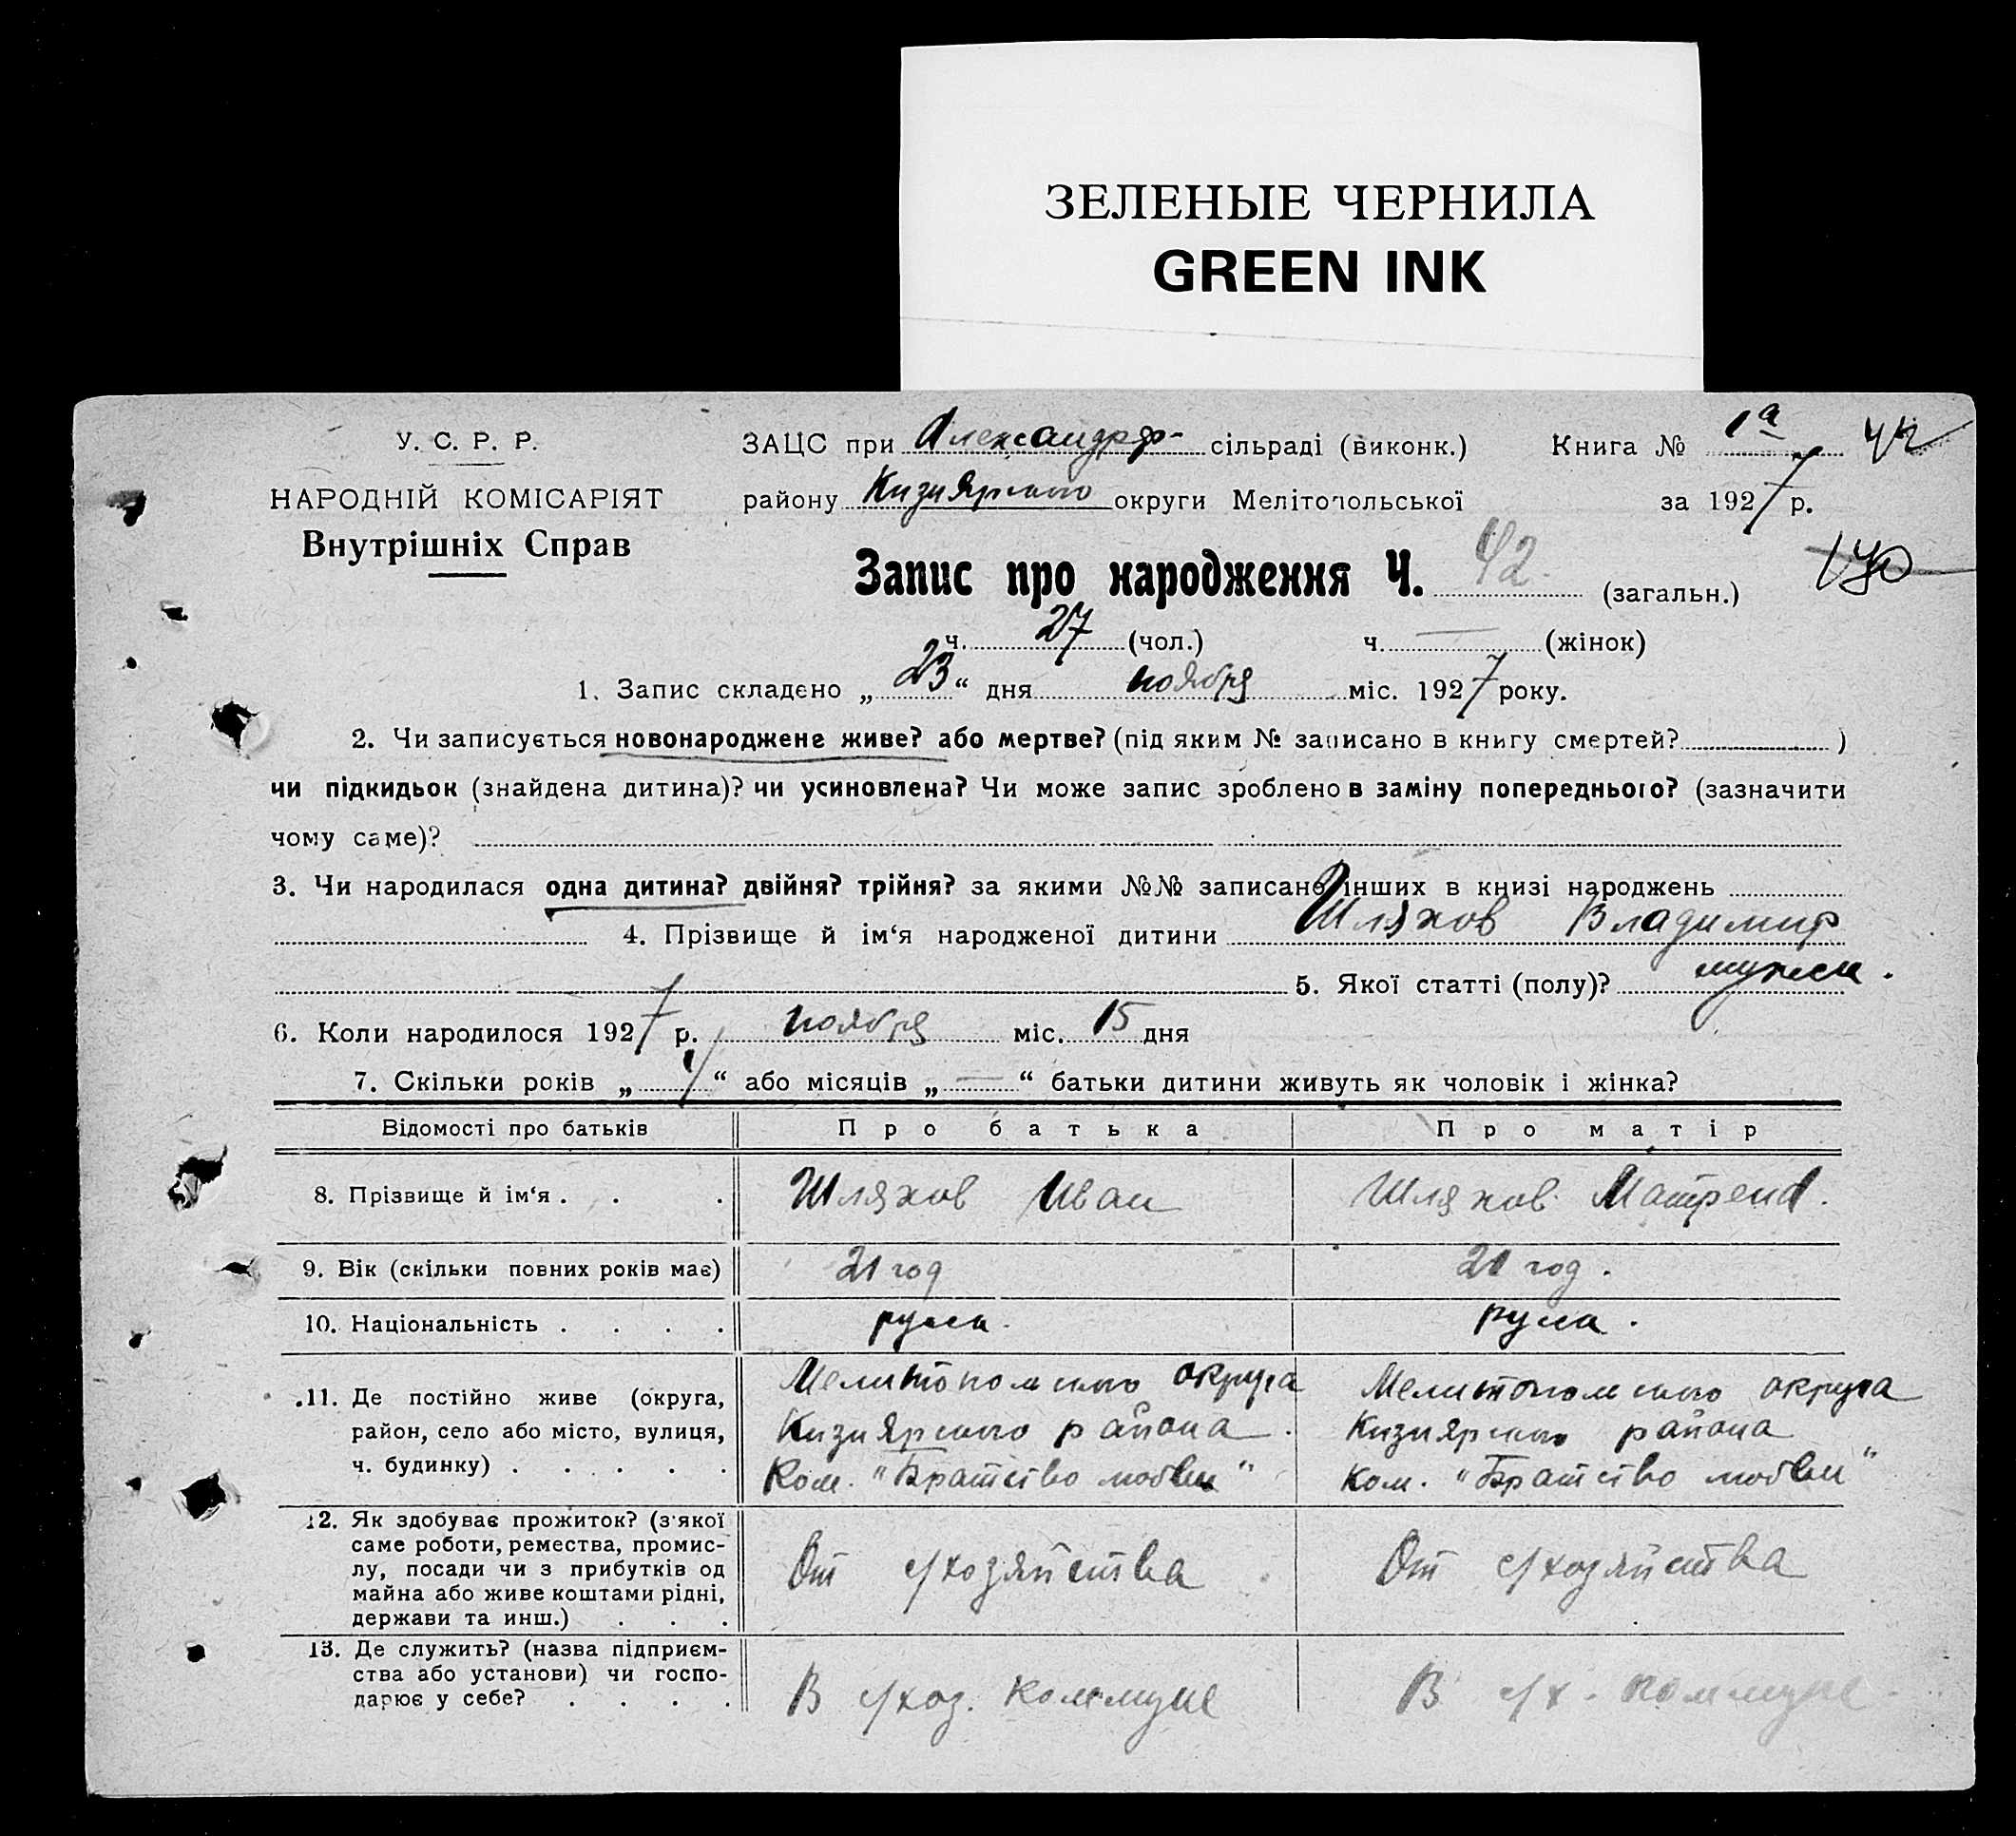 ЗЕЛЕНЫЕ ЧЕРНИЛА
GREEN INK
У. С. Р. Р.
НАРОДНІЙ КОМІСАРІЯТ
Внутрішніх Справ
ЗАЦС при Александр- сільраді (виконк.) Книга № 1а 42
району Кизиярского округи Мелітопольської за 1927 р.
Запис про народження Ч. 42 (загальн.)
ч. 27 (чол.) ч. — (жінок)
1. Запис складено „23“ дня ноября міс. 1927 року.
2. Чи записується новонароджене живе? або мертве? (під яким № записано в книгу смертей? )
чи підкидьок (знайдена дитина)? чи усиновлена? Чи може запис зроблено в заміну попереднього? (зазначити
чому саме)?
3. Чи народилася одна дитина? двійня? трійня? за якими №№ записано інших в книзі народжень
4. Прізвище й ім‘я народженої дитини Шляхов Владимир
5. Якої статті (полу)? мужск.
6. Коли народилося 1927 р. ноября міс. 15 дня
7. Скільки років „1“ або місяців „—“ батьки дитини живуть як чоловік і жінка?
Відомості про батьків Про батька Про матір
8. Прізвище й ім‘я . . . Шляхов Иван Шляхов Матрена.
9. Вік (скільки повних років має) 21 год 21 год.
10. Національність . . . . русск. русск.
.11. Де постійно живе (округа, Мелитопольского округа Мелитопольского округа
район, село або місто, вулиця, Кизиярского района. Кизиярского района
ч. будинку) . . . . . Ком. "Братство любви" Ком. "Братство любви"
12. Як здобуває прожиток? (з'якої
саме роботи, ремества, промис-
лу, посади чи з прибутків од От с/хозяйства От с/хозяйства
майна або живе коштами рідні,
держави та инш.) . . .
13. Де служить? (назва підприєм-
ства або установи) чи госпо- В с/хоз. коммуне В с/х. коммуне.
дарює у себе? . . . .